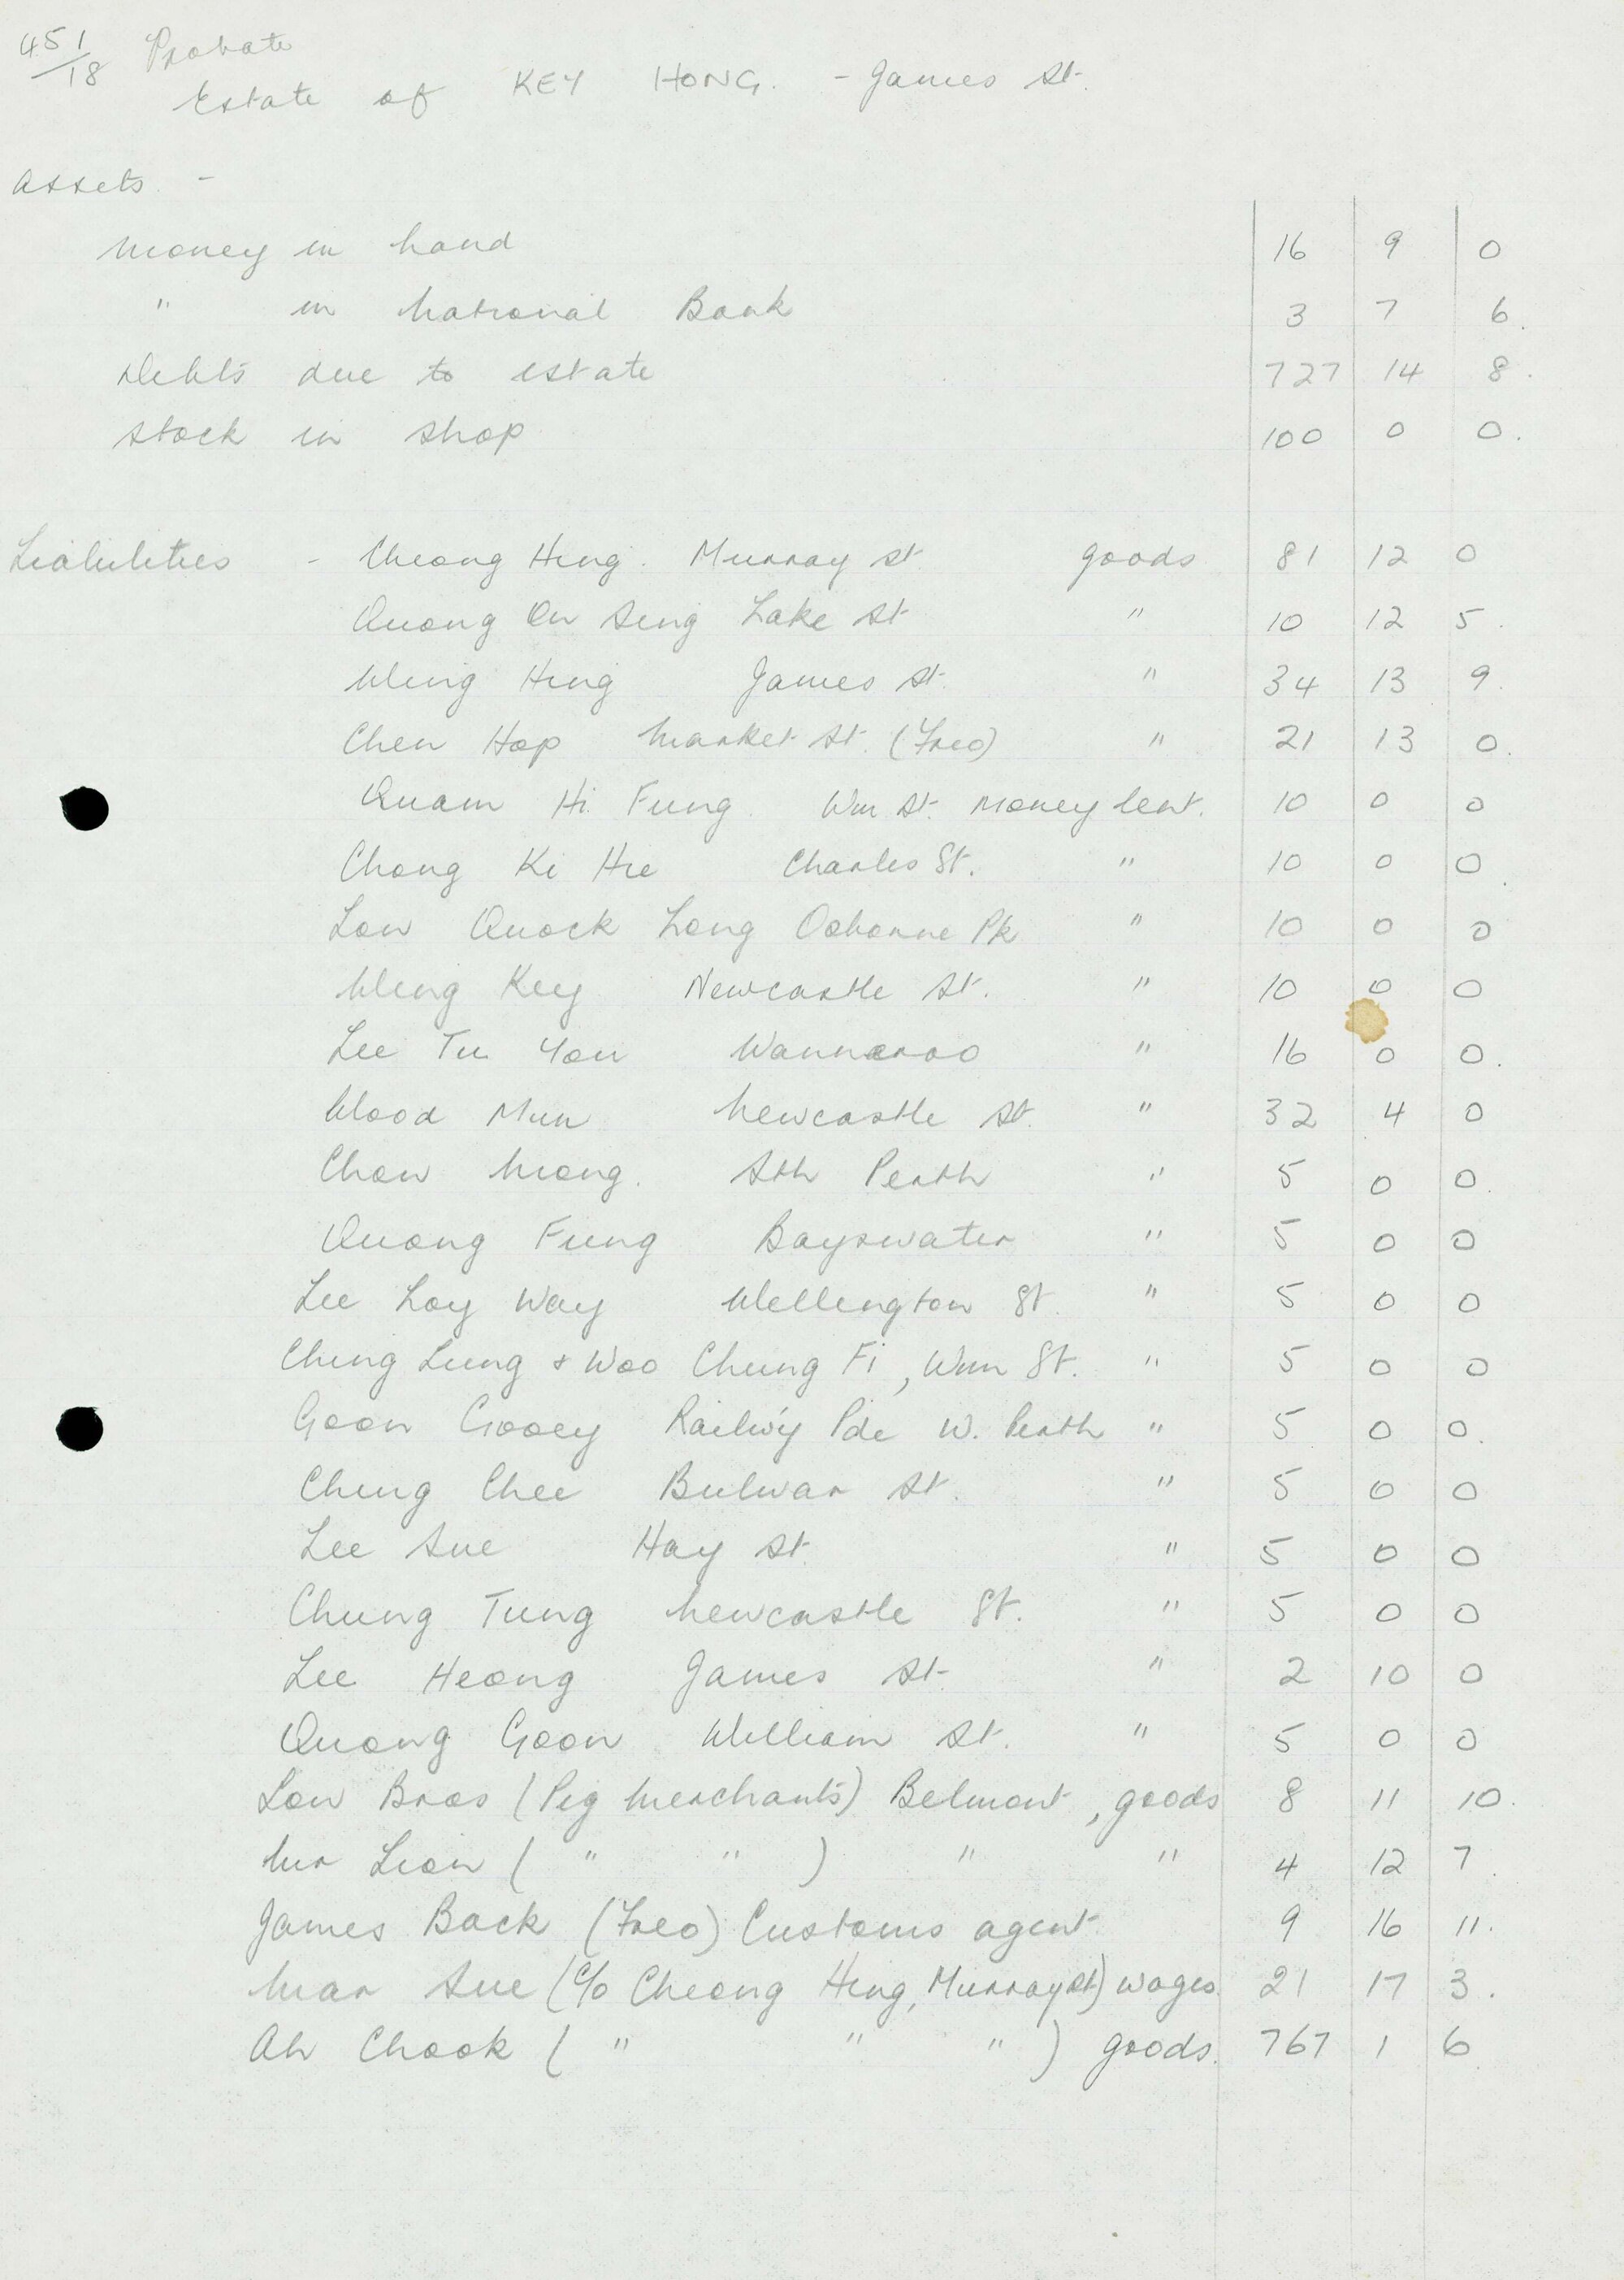 451/18 Probate
Estate of KEY HONG. - James St.
Assets. -
Money in hand 16 9 0
" in National Bank 3 7 6.
Debts due to estate 727 14 8.
Stock in shop 100 0 0.
Liabilities - Cheong Hing. Murray St goods 81 12 0
Quong On Sing Lake St " 10 12 5.
Wing Hing James St. " 34 13 9.
Chew Hop Market St. (Freo) " 21 13 0.
Quam Hi Fung Wm St. Money lent. 10 0 0
Chong Ki Hie Charles St. " 10 0 0.
Low Quock Long Osborne Pk " 10 0 0
Wing Key Newcastle St. " 10 0 0
Lee Tu You Wanneroo " 16 0 0.
Wood Mun Newcastle St. " 32 4 0
Chow Mong. Sth Perth " 5 0 0.
Quong Fung Bayswater " 5 0 0
Lee Loy Way Wellington St. " 5 0 0
Ching Lung & Woo Chung Fi, Wm St. " 5 0 0
Goon Gooey Railw'y Pde W. Perth " 5 0 0.
Chung Chee Bulwar St. " 5 0 0
Lee Sue Hay St " 5 0 0
Chung Tung Newcastle St. " 5 0 0
Lee Heong James St. " 2 10 0
Quong Goon William St. " 5 0 0
Low Bros (Pig Merchants) Belmont, goods 8 11 10.
Mr Liow ( " " ) " " 4 12 7.
James Back (Freo) Customs agent 9 16 11.
Mar Sue (C/o Cheong Hing, Murray St) wages. 21 17 3.
Ah Chook ( " " " ) goods. 767 1 6